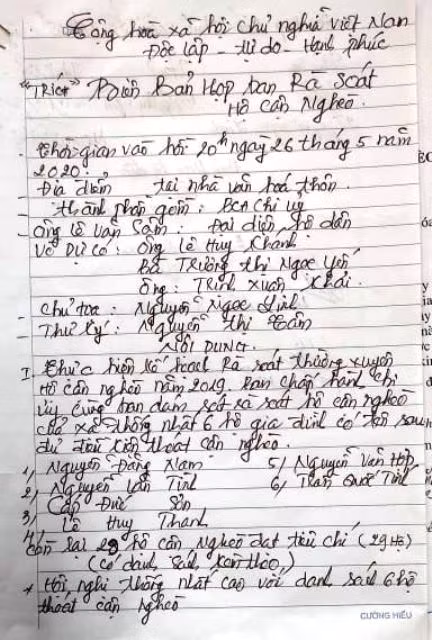 Cộng hoà xã hội chủ nghĩa việt Nam
Độc lập - tự do - Hạnh phúc
"TRích" Biên Bản Họp ban Rà Soát
Hộ cận Nghèo.
- Thời gian vào hồi 20h ngày 26 tháng 5 năm
2020.
- Địa điểm tại nhà văn hoá thôn.
- thành phần gồm: BCH chi uỷ
- ông lê văn Sâm: Đại diện hộ dân
Về Dự có: ông Lê Huy Khanh
Bà Trương thị Ngọc Yến
ông: Trịnh Xuân Khải.
- Chủ toạ: Nguyễn Ngọc
- Thư ký: Nguyễn thị
NỘI DUNG.
I. Thực hiện kế hoạch Rà soát thường xuyên
Hộ cận nghèo năm 2019. Ban chấp hành chi
ủy cùng ban dám sát rà soát hộ cận nghèo
của xã thống nhất 6 hộ gia đình có tên sau
đủ điều kiện thoát cận nghèo.
1, Nguyễn Đăng Nam 5, Nguyễn Văn Hợp
2, Nguyễn Văn Tình 6, Trần Quốc Tính
3, Cao Đức Sơn
4, Lê Huy Thanh
Còn lại 29 hộ cận Nghèo đạt tiêu chí (29 Hộ)
(có danh sách kèm theo,)
* Hội nghị thống nhất cao với danh sách 6 hộ
thoát cận nghèo
CƯỜNG HIẾU